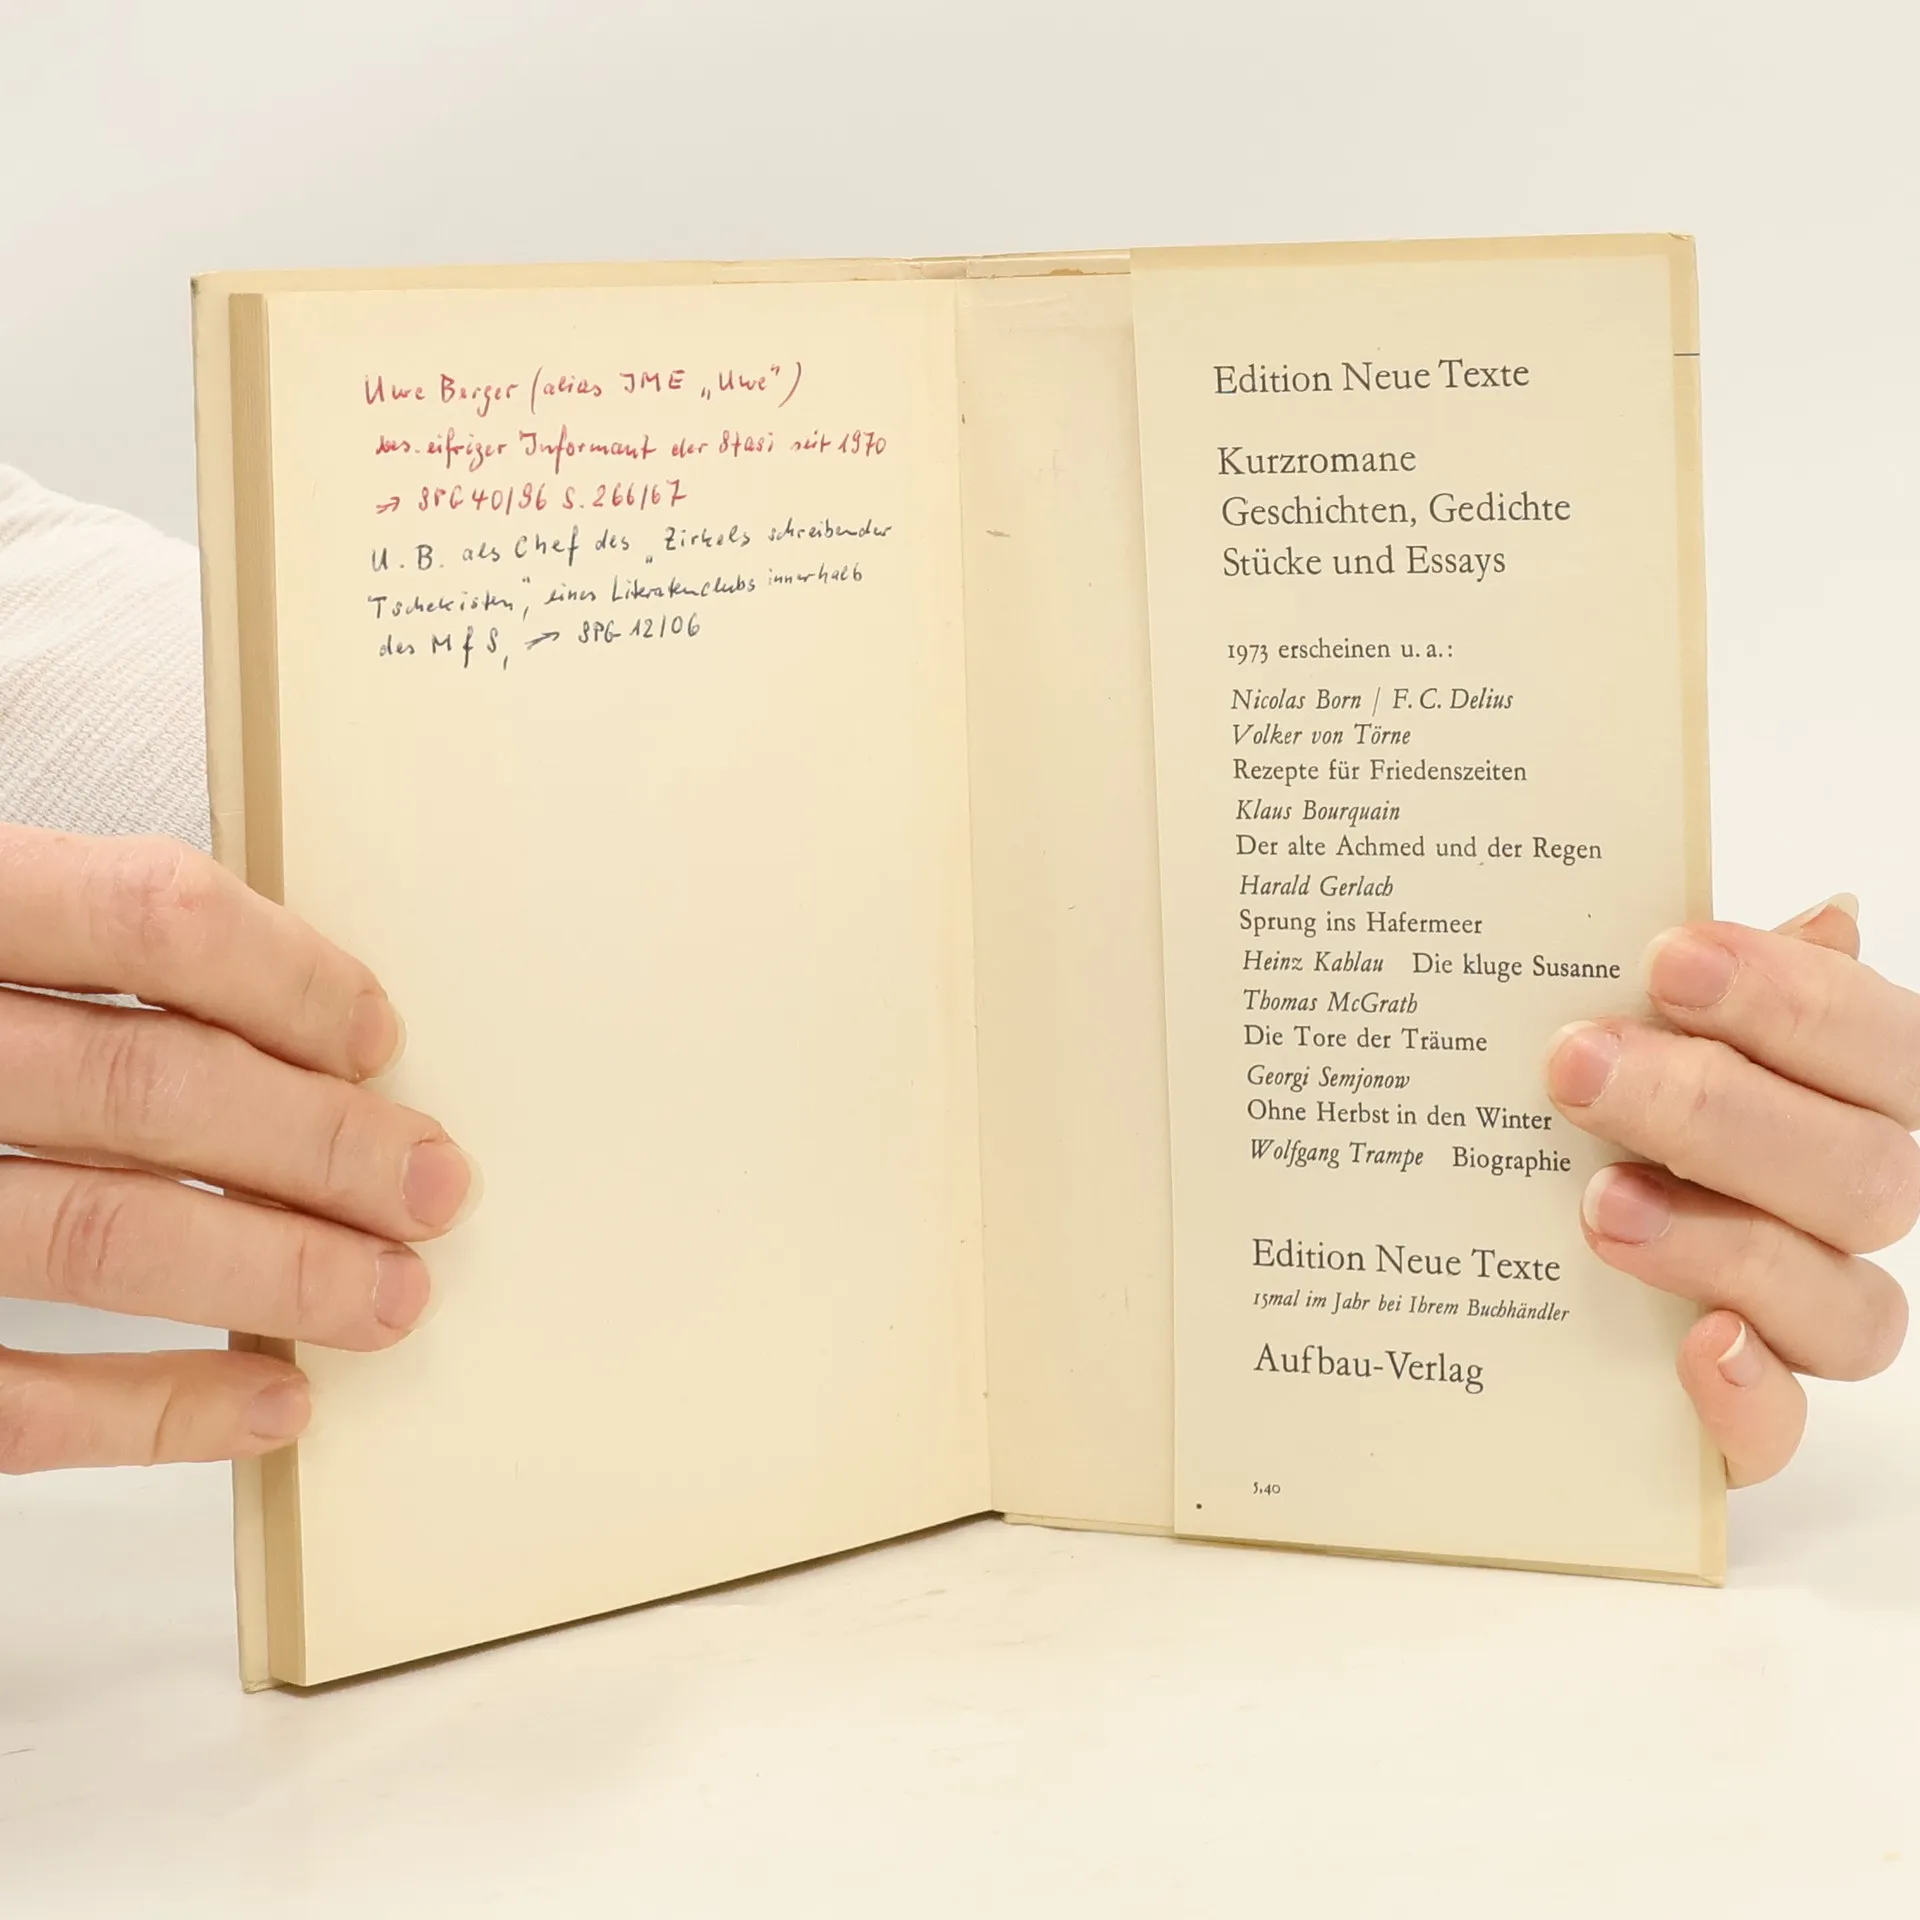 Uwe Berger (alias IME „Uwe")
bes. eifriger Informant der Stasi seit 1970
→ SPG 40/96 S. 266/67
U. B. als Chef des „Zirkels schreibender
Tschekisten", eines Literatenclubs innerhalb
des MfS, → SPG 12/06
Edition Neue Texte
Kurzromane
Geschichten, Gedichte
Stücke und Essays
1973 erscheinen u. a.:
Nicolas Born / F. C. Delius
Volker von Törne
Rezepte für Friedenszeiten
Klaus Bourquain
Der alte Achmed und der Regen
Harald Gerlach
Sprung ins Hafermeer
Heinz Kahlau Die kluge Susanne
Thomas McGrath
Die Tore der Träume
Georgi Semjonow
Ohne Herbst in den Winter
Wolfgang Trampe Biographie
Edition Neue Texte
15mal im Jahr bei Ihrem Buchhändler
Aufbau-Verlag
5,40